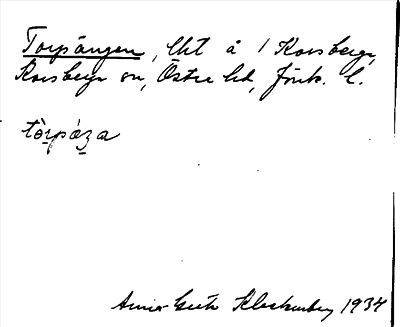 Torpängen, lht å 1 Korsberga,
Korsberga sn, Östra hd, Jönk. l.
tòrpáza
Anna-Greta 1934